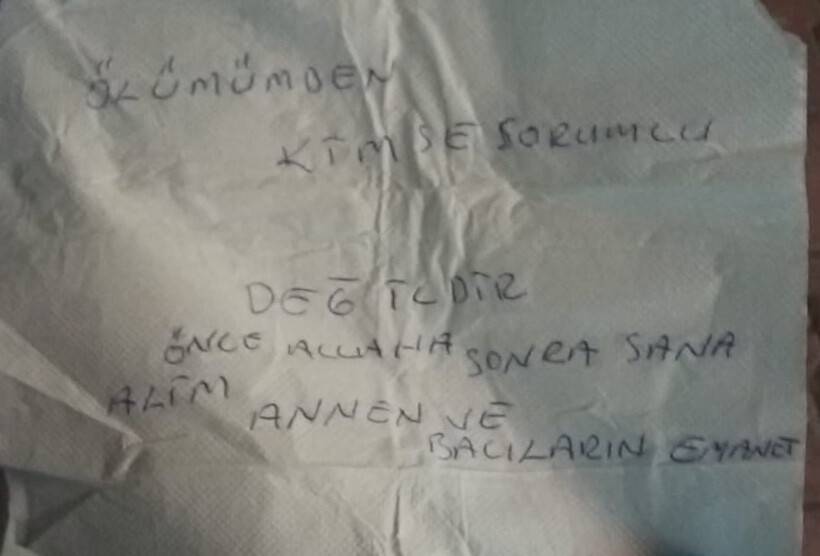 ÖLÜMÜMDEN
KİMSE SORUMLU
DEĞİLDİR
ÖNCE ALLAHA SONRA SANA
ALİM ANNEN VE
BACILARIN EMANET